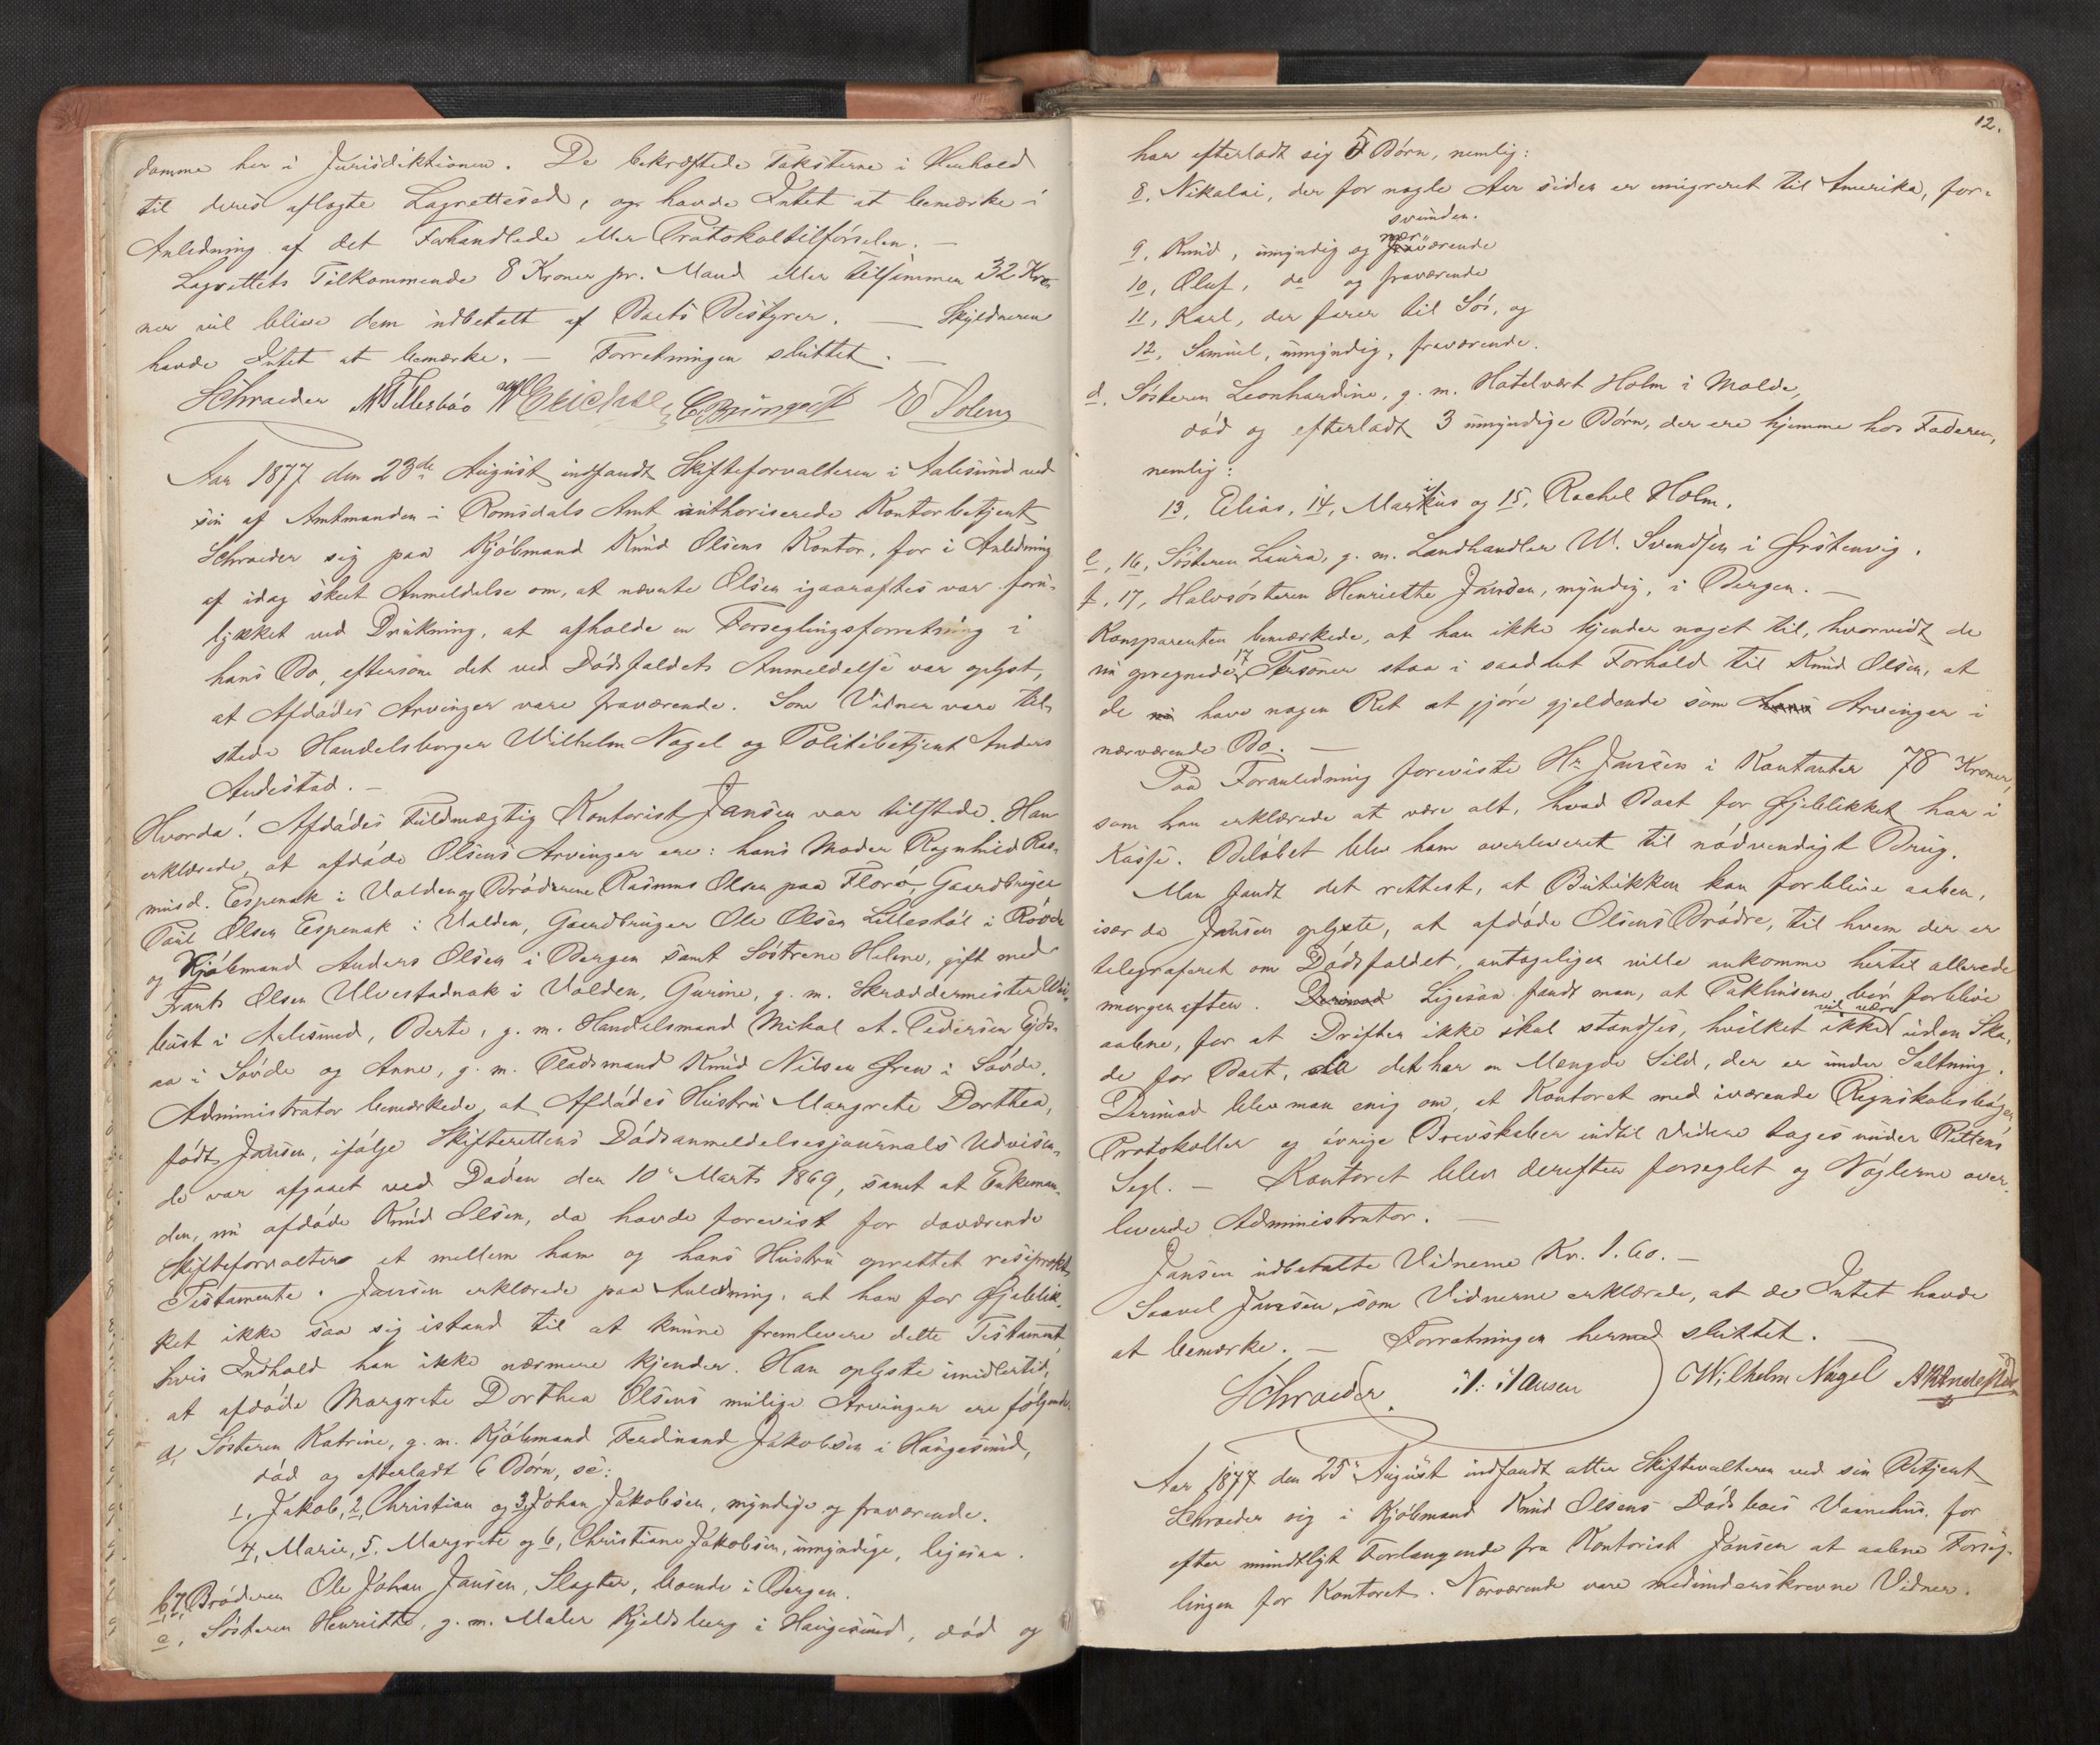 damme her i Jurisdiktionen. De bekræftede Taksterne i Henhold
til deres aflagte Lagrettesed, og havde Intet at bemærke i
Anledning af det Forhandlede eller Protokoltilførselen. —
Lagrettets Tilkommende 8 Kroner pr. Mand eller tilsammen 32 Kro-
ner vil blive dem udbetalt af Boets Bestyrer. — Skyldneren
havde Intet at bemærke. — Forretningen sluttet. —
Schrøder
Aar 1877 den 23de August indfandt Skifteforvalteren i Aalesund ved
sin af Amtmanden i Romsdals Amt authoriserede Kontorbetjent
Schrøder sig paa Kjøbmand Knud Olsens Kontor, for i Anledning
af idag skeet Anmeldelse om, at nævnte Olsen igaaraftes var foru-
lykket ved Drukning, at afholde en Forseglingsforretning i
hans Bo, eftersom det ved Dødsfaldets Anmeldelse var oplyst,
at Afdødes Arvinger vare fraværende. Som Vidner vare til-
stede Handelsborger Wilhelm Nagel og Politibetjent Anders
Andestad. —
Hvorda! Afdødes Fuldmægtig Kontorist Jansen var tilstede. Han
erklærede, at afdøde Olsens Arvinger ere: hans Moder Ragnhild Ras-
musd. Espenak i Volden og Brødrene Rasmus Olsen paa Florø, Gaardbruger
Paul Olsen Espenak i Volden, Gaardbruger Ole Olsen Lillestøl i Røvde
og Kjøbmand Anders Olsen i Bergen samt Søstrene Helene, gift med
Frants Olsen Ulvestadnak i Volden, Gurine, g. m. Skræddermester
i Aalesund, Berte, g. m. Handelsmand Mikal A. Pedersen Eids-
aa i Søvde og Anne, g. m. Pladsmand Knud Nilsen Øren i Søvde.
Administrator bemærkede, at Afdødes Hustru Margrete Dorthea,
født Jansen, ifølge Skifterettens Dødsanmeldelsesjournals Udvisen-
de var afgaaet ved Døden den 10de Marts 1869, samt at Enkeman-
den, nu afdøde Knud Olsen, da havde forevist for daværende
Skifteforvalter et mellem ham og hans Hustru oprettet resiprokt
Testamente. Jansen erklærede paa Anledning, at han for Øjeblik-
ket ikke saa sig istand til at kunne fremlevere dette Testament,
hvis Indhold han ikke nærmere kjender. Han oplyste imidlertid,
at afdøde Margrete Dorthea Olsens mulige Arvinger ere følgende:
a, Søsteren Katrine, g. m. Kjøbmand Ferdinand Jakobsen i Haugesund,
død og efterladt 6 Børn, se:
1, Jakob, 2, Christian og 3, Johan Jakobsen, myndige og fraværende.
4, Marie, 5. Margrete og 6, Christiane Jakobsen, umyndige, ligesaa.
b, 7, Broderen Ole Johan Jansen, Slagter, boende i Bergen.
c, Søsteren Henriette, g. m. Maler Kjeldsberg i Haugesund, død og
12.
har efterladt sig 5 Børn, nemlig:
8, Nikolai, der for nogle Aar siden er emigreret til Amerika, for-
svunden.
9, Knud, umyndig og nærværende
10, Oluf, do og fraværende
11, Karl, der farer til Søs, og
12, Samuel, umyndig, fraværende.
d, Søsteren Leonhardine, g. m. Hotelvært Holm i Molde,
død og efterladt 3 umyndige Børn, der ere hjemme hos Faderen,
nemlig:
13, Elias, 14, Markus og 15, Rachel Holm.
e, 16, Søsteren Laura, g. m. Landhandler W. Svendsen i Ørstenvig.
f, 17, Halvsøsteren Henriette Jansen, myndig, i Bergen. —
Komparenten bemærkede, at han ikke kjender noget til, hvorvidt de
nu opregnede 17 Personer staa i saadant Forhold til Knud Olsen, at
de have nogen Ret at gjøre gjeldende som Arvinger i
nærværende Bo. —
Paa Foranledning foreviste Hr Jansen i Kontanter 78 Kroner,
som han erklærede at være alt, hvad Boet for Øjeblikket har i
Kasse. Beløbet blev ham overleveret til nødvendigt Brug.
Man fandt det rettest, at Butikken kan forblive aaben,
især da Jansen oplyste, at afdøde Olsens Brødre, til hvem der er
telegraferet om Dødsfaldet, antageligen ville ankomme hertil allerede
morgenaften. Derimod Ligesaa fandt man, at Pakhusene bør forblive
aabne, for at Driften ikke skal standses, hvilket ikke vil være uden Ska-
de for Boet, da det har en Mængde Sild, der er under Saltning.
Derimod blev man enig om, at Kontoret med iværende Regnskabsbøger,
Protokoller og øvrige Brevskaber indtil videre tages under Rettens
Segl. — Kontoret blev derefter forseglet og Nøglerne over-
leverede Administrator. —
Jansen udbetalte Vidnerne Kr. 1.60. —
Saavel Jansen, som Vidnerne erklærede, at de Intet havde
at bemærke. — Forretningen hermed sluttet. —
Schrøder. Jansen Wilhelm Nagel
Aar 1877 den 25de August indfandt atter Skifteforvalteren ved sin Betjent
Schrøder sig i Kjøbmand Knud Olsens Dødsboes Vaanehus, for
efter mundtligt Forlangende fra Kontorist Jansen at aabne Forseg-
lingen for Kontoret. Nærværende vare medunderskrevne Vidner.